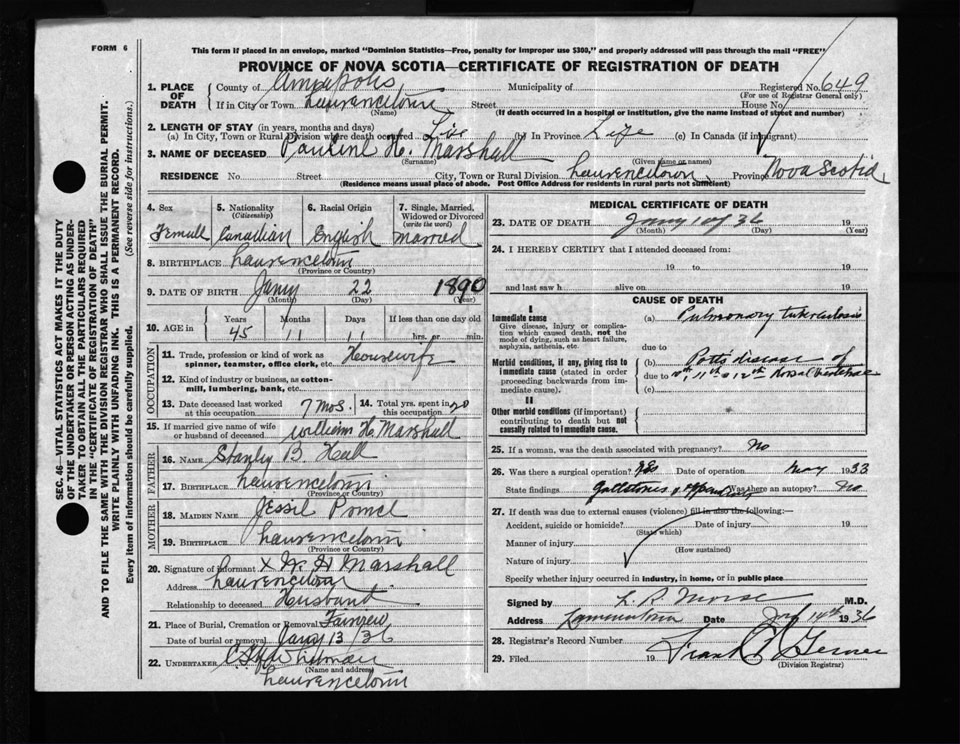 FORM 6
This form if placed in an envelope, marked "Dominion Statistics—Free, penalty for improper use $300," and properly addressed will pass through the mail "FREE"
PROVINCE OF NOVA SCOTIA—CERTIFICATE OF REGISTRATION OF DEATH
SEC. 46—VITAL STATISTICS ACT MAKES IT THE DUTY
OF THE UNDERTAKER OR PERSON ACTING AS UNDER-
TAKER TO OBTAIN ALL THE PARTICULARS REQUIRED
IN THE "CERTIFICATE OF REGISTRATION OF DEATH"
AND TO FILE THE SAME WITH THE DIVISION REGISTRAR WHO SHALL ISSUE THE BURIAL PERMIT.
WRITE PLAINLY WITH UNFADING INK. THIS IS A PERMANENT RECORD.
Every item of information should be carefully supplied. (See reverse side for instructions.)
1. PLACE OF DEATH
County of Annapolis Municipality of Registered No. 649
(For use of Registrar General only)
If in City or Town Laurencetown Street House No.
(Name) (If death occurred in a hospital or institution, give the name instead of street and number)
2. LENGTH OF STAY (in years, months and days)
(a) In City, Town or Rural Division where death occurred Life (b) In Province Life (c) In Canada (if immigrant)
3. NAME OF DECEASED Pauline H. Marshall
(Surname) (Given name or names)
RESIDENCE No. Street City, Town or Rural Division Laurencetown Province Nova Scotia
(Residence means usual place of abode. Post Office Address for residents in rural parts not sufficient)
4. Sex 5. Nationality (Citizenship) 6. Racial Origin 7. Single, Married, Widowed or Divorced (write the word)
Female Canadian English Married
8. BIRTHPLACE Laurencetown
(Province or Country)
9. DATE OF BIRTH Jany 22 1890
(Month) (Day) (Year)
10. AGE in Years Months Days If less than one day old
45 11 1 hrs. or min.
OCCUPATION
11. Trade, profession or kind of work as spinner, teamster, office clerk, etc. Housewife
12. Kind of industry or business, as cotton-mill, lumbering, bank, etc.
13. Date deceased last worked at this occupation 7 mos. 14. Total yrs. spent in this occupation 20
15. If married give name of wife or husband of deceased William H. Marshall
FATHER
16. NAME Stanly B. Hall
17. BIRTHPLACE Laurencetown
(Province or Country)
MOTHER
18. MAIDEN NAME Jessie
19. BIRTHPLACE Laurencetown
(Province or Country)
20. Signature of informant x W. H Marshall
Address Laurencetown
Relationship to deceased Husband
21. Place of Burial, Cremation or Removal Fairview
Date of burial or removal Jany 13/36
22. UNDERTAKER Whitman
(Name and address)
Laurencetown
MEDICAL CERTIFICATE OF DEATH
23. DATE OF DEATH Jany 36 19
(Month) (Day) (Year)
24. I HEREBY CERTIFY that I attended deceased from:
19 to 19
and last saw h alive on 19
CAUSE OF DEATH
I
Immediate cause (a) Pulmonary tuberculosis
Give disease, injury or complication which caused death, not the mode of dying, such as heart failure, asphyxia, asthenia, etc.
due to
Morbid conditions, if any, giving rise to immediate cause (stated in order proceeding backwards from immediate cause).
(b) Potts disease of
due to 10th, 11th & 12th dorsal vertebrae
(c)
II
Other morbid conditions (if important) contributing to death but not causally related to immediate cause.
25. If a woman, was the death associated with pregnancy? No
26. Was there a surgical operation? Yes Date of operation May 1933
State findings Gallstones & appendix Was there an autopsy? No
27. If death was due to external causes (violence) fill in also the following:—
Accident, suicide or homicide? Date of injury 19
(State which)
Manner of injury
(How sustained)
Nature of injury
Specify whether injury occurred in industry, in home, or in public place
Signed by L. R. Morse M.D.
Address Date 14th 1936
28. Registrar's Record Number
29. Filed 19 Frank
(Division Registrar)